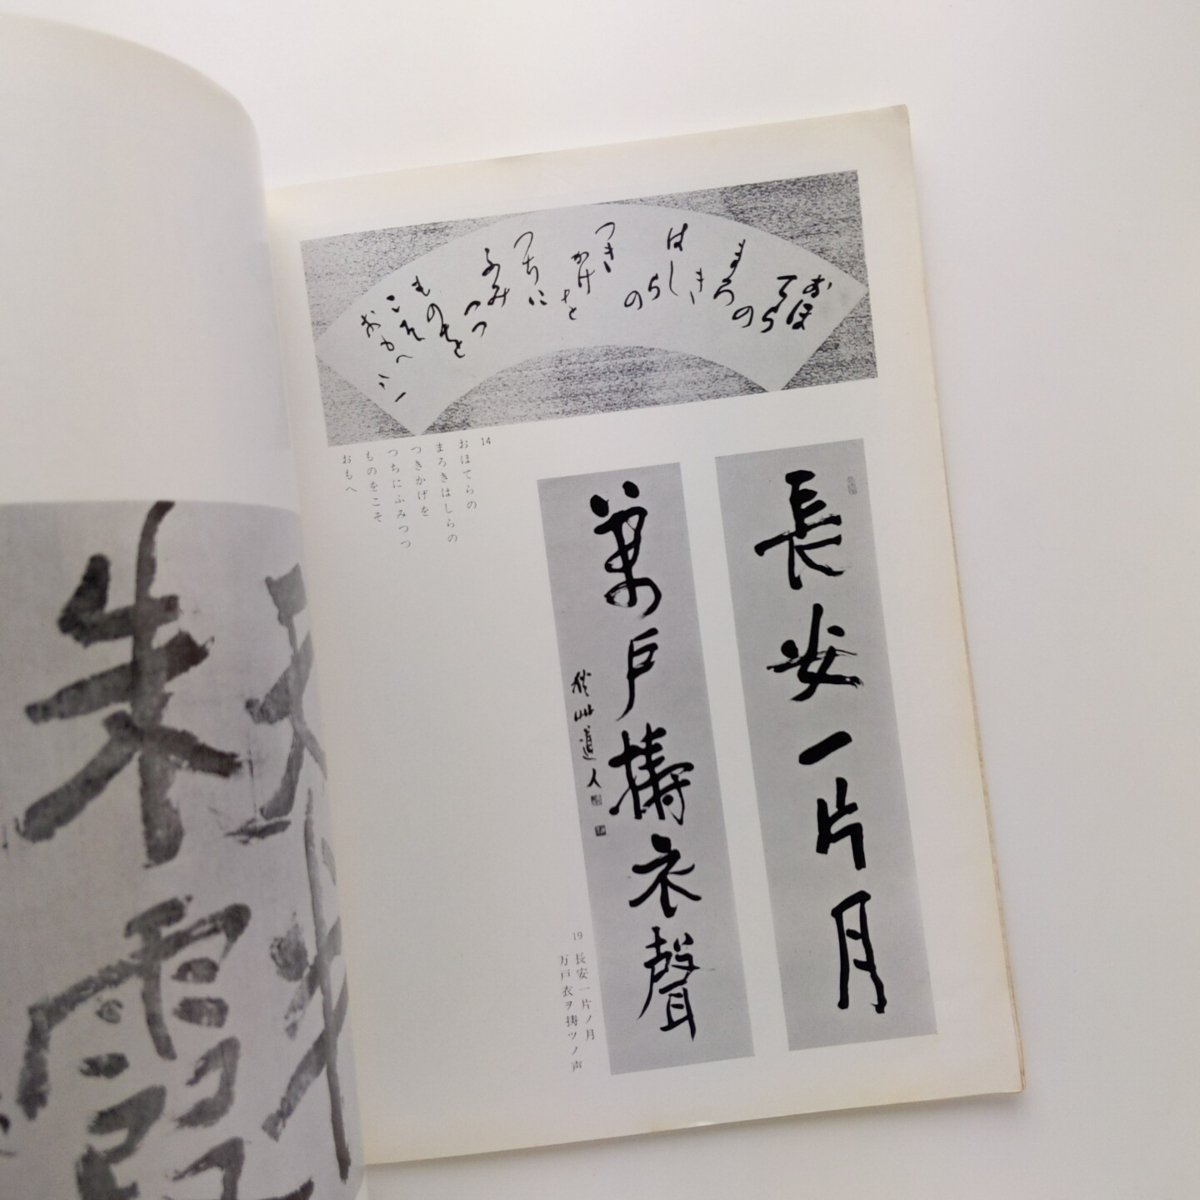 おほ
てら
の
まろ
き
はし
らの
つき
かけ
を
つちに
ふみ
つつ
ものを
こそ
おもへ
八一
14
おほてらの
まろきはしらの
つきかげを
つちにふみつつ
ものをこそ
おもへ
長安一片月
萬戸擣衣聲
秋艸道人
19
長安一片ノ月
万戸衣ヲ擣ツノ声
朱霞